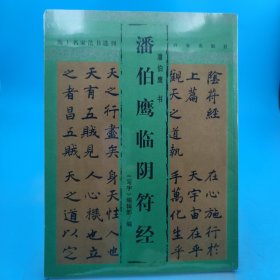 海上名家法书选刊
潘伯鹰书
潘伯鹰临阴符经
《写字》编辑部 编
陰符經
上篇
觀天之道執
天之行盡矣
天有五賊見
之者昌五賊
在心施行於
天宇宙在乎
手萬化生乎
身天性人也
人心機也立
天之道以定